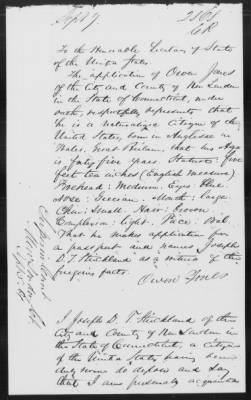 Sept 9.
To the Honorable Secretary of State
of the United States.
The application of Owen Jones
of the City and County of New London
in the State of Connecticut, under
oath, respectfully represents that
he is a naturalized citizen of the
United States, born in Anglesea in
Wales, Great Britain, that his age
is forty five years. Stature: five
feet ten inches (English measure)
Forehead: Medium: Eyes: Blue.
Nose: Grecian. Mouth: large.
Chin: Small. Hair: Brown
Complexion: Light. Face: Oval
That he makes application for
a passport and names Joseph
D. T. Strickland as a witness of the
foregoing facts.
Owen Jones
I Joseph D. T. Strickland of the
City and County of New London in
the State of Connecticut, a citizen
of the United States having been
duly sworn do depose and say
that I am personally acquainted